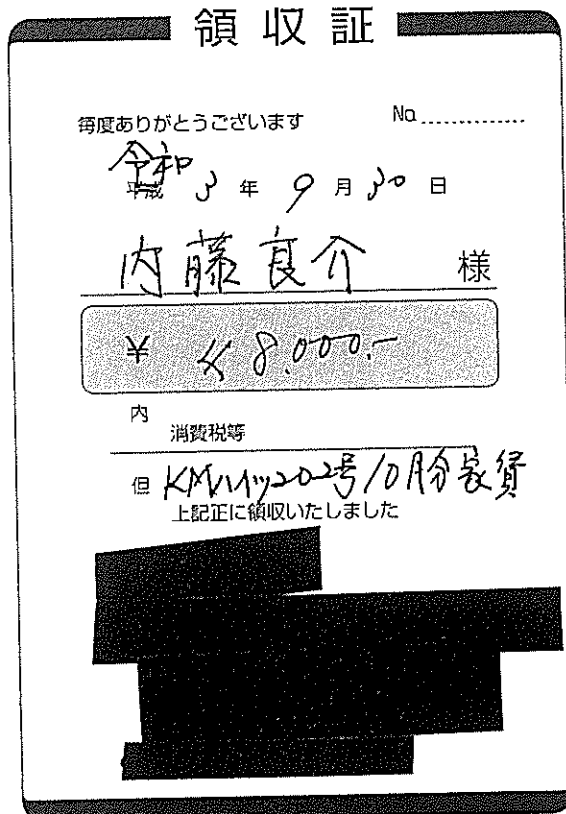 領収証
毎度ありがとうございます No.
令和
平成 3 年 9 月 30 日
内藤良介 様
¥ 8,000.-
内
消費税等
但 KMハイツ202号10月分家賃
上記正に領収いたしました